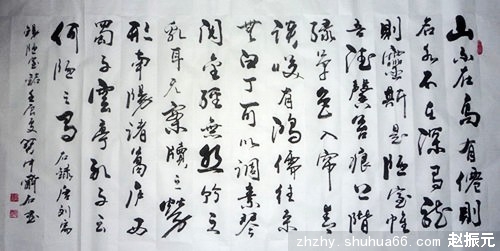 山不在高有僊則
名水不在深有龍
則靈斯是陋室惟
吾德馨苔痕上階
綠草色入帘青
談笑有鴻儒往來
無白丁可以調素琴
閱金經無絲竹之
亂耳无案牘之勞
形南陽諸葛庐西
蜀子雲亭孔子云
何陋之有 右錄唐刘禹
錫陋室銘 壬辰夏
zhzhy.shuhua66.com 赵振元